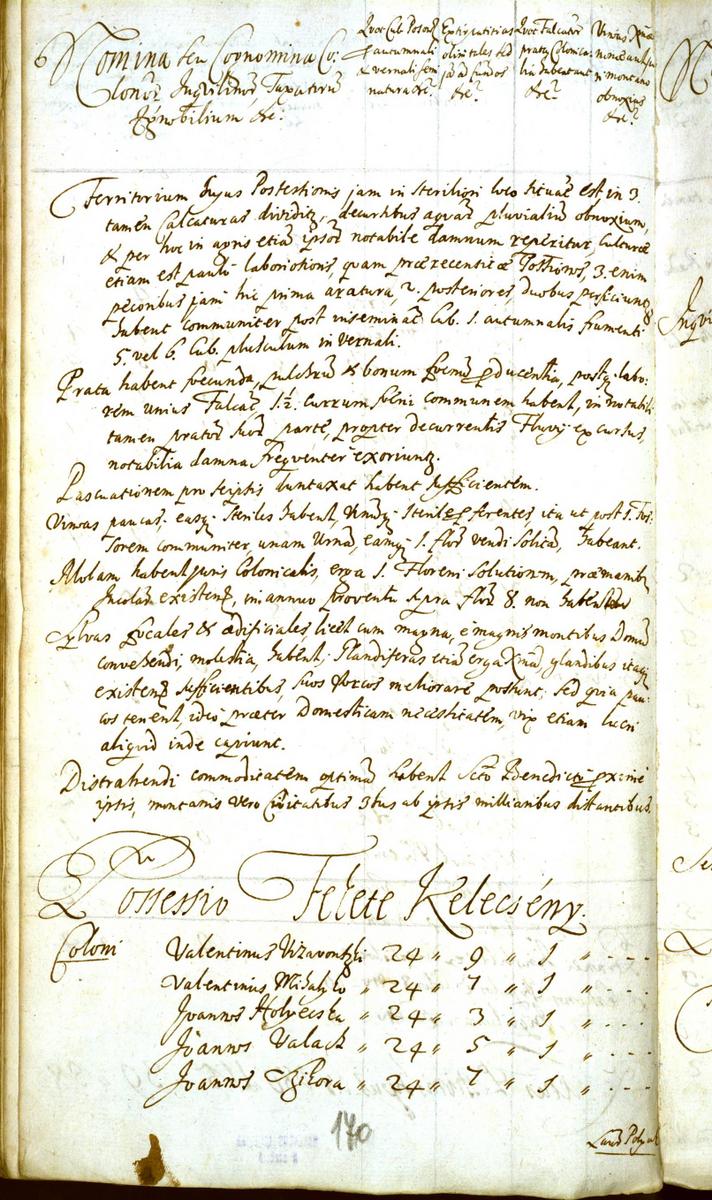 6 Nomina seu Cognomina Co:
lonor. Inquilinor. Taxatorū
Ignobilium &c:
Quot Cub. Poson.
autumnali
& vernali sem
natura &c.
Extirpatitias
olim tales sed
jā ad fundos
&c.
Quot Falcator
prata Colonica:
lia habeant
&c.
Vineas
obnoxias
&c.
Territorium hujus Possessionis, jam in steriliori loco situat. est in 3.
tamen Calcaturas dividit, decursibus aquar. pluvialium obnoxium,
& per hoc in agris etiā ipsor. notabile damnum reperitur, Culturæ
etiam est paulo laboriosioris, quam prærecensitæ Possionis, 3. enim
pecoribus jam hic prima aratura, 2. posteriores, duobus perficiunt
habent communiter post inseminat. Cub. 1. autumnalis frumenti
5. vel 6. Cub. plusculum in vernali.
Prata habent fœcunda, pulchrū & bonum fœnū producentia, postq. labo:
rem unius Falcat. 1½. currum fœni communem habent, in notabili
tamen prator. suor. parte, propter decurrentis Fluvij excursus,
notabilia damna frequenter exoriunt.
Pascuationem pro se ipsis duntaxat habent sufficientem.
Vineas paucas, easq. steriles habent, Vinūq. sterile ferentes, ita ut post 1. Fos:
sorem communiter, unam Urnā, eamq. 1. flor. vendi solitā, habeant.
Molam habent juris Colonicalis, erga 1. Floreni solutionem, præ manib.
Incolar. existent., in annuo proventu supra flor. 8. non habent
Sylvas focales & ædificiales licet cum magna, è magnis montibus Domū
convehendi, molestia, habent; Glandiferas etiā erga Xmā, glandibus itaq.
existent. sufficientibus, suos porcos meliorare possunt. Sed quia pau:
cos tenent, ideo præter Domesticam necessitatem, vix etiam lucri
aliquid inde capiunt.
Distrahendi commoditatem optimā habent Scto Benedicto
ipsis, montanis vero Civitatibus 3bus ab ipsis milliaribus distantibus.
Possessio Fekete Kelecsény.
Coloni Valentinus 24 „ 9 „ 1 „ - - -
Valentinus Mihalyko „ 24 „ 7 „ 1 „ - - -
Joannes Holyecska „ 24 „ 3 „ 1 „ - - -
Joannes Valach „ 24 „ 5 „ 1 „ - - -
Joannes Szikora „ 24 „ 7 „ 1 „ - - -
170